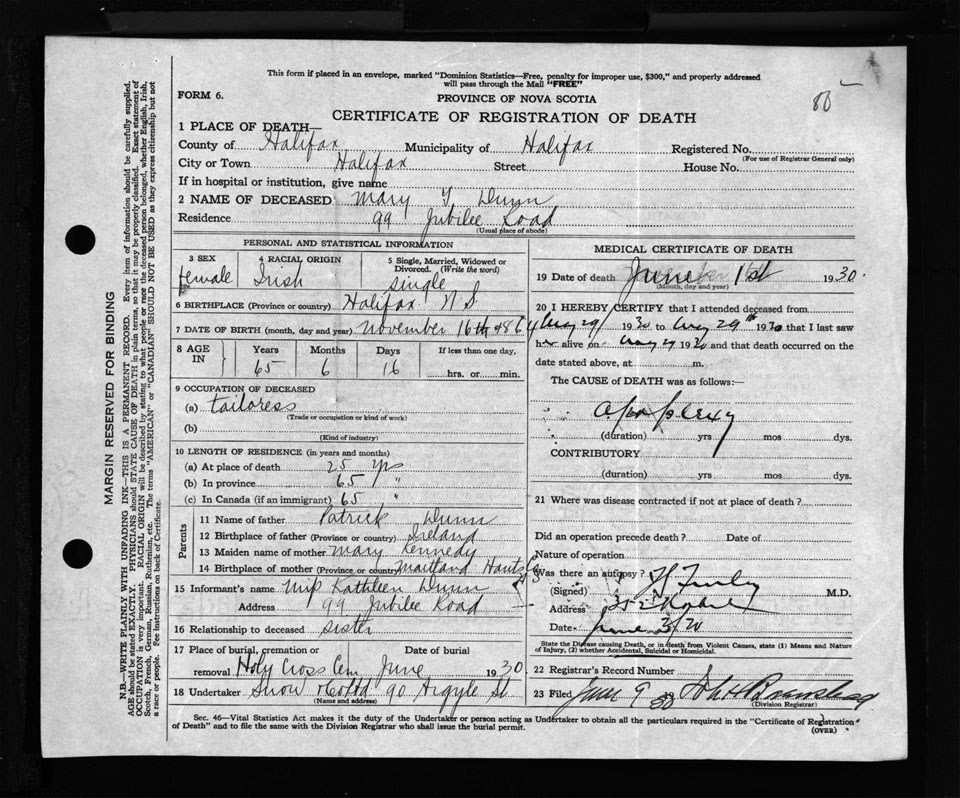 This form if placed in an envelope, marked "Dominion Statistics—Free, penalty for improper use, $300," and properly addressed
will pass through the Mail "FREE"
FORM 6.
PROVINCE OF NOVA SCOTIA
80
CERTIFICATE OF REGISTRATION OF DEATH
1 PLACE OF DEATH—
County of Halifax Municipality of Halifax Registered No.
(For use of Registrar General only)
City or Town Halifax Street House No.
If in hospital or institution, give name
2 NAME OF DECEASED Mary Dunn
Residence 99 Jubilee Road
(Usual place of abode)
PERSONAL AND STATISTICAL INFORMATION
3 SEX 4 RACIAL ORIGIN 5 Single, Married, Widowed or Divorced. (Write the word)
female Irish single
6 BIRTHPLACE (Province or country) Halifax N S
7 DATE OF BIRTH (month, day and year) November 16th
8 AGE IN Years Months Days If less than one day,
65 6 16 hrs. or min.
9 OCCUPATION OF DECEASED
(a) tailoress
(Trade or occupation or kind of work)
(b)
(Kind of industry)
10 LENGTH OF RESIDENCE (in years and months)
(a) At place of death 25 yrs
(b) In province 65 "
(c) In Canada (if an immigrant) 65 "
Parents
11 Name of father Patrick Dunn
12 Birthplace of father (Province or country) Ireland
13 Maiden name of mother Mary Kennedy
14 Birthplace of mother (Province or country) Maitland Hants
15 Informant's name Miss Kathleen Dunn
Address 99 Jubilee Road
16 Relationship to deceased sister
17 Place of burial, cremation or removal Date of burial
Holy Cross Cem June 1930
18 Undertaker Snow 90 Argyle St
(Name and address)
MEDICAL CERTIFICATE OF DEATH
19 Date of death June 1st 1930
(Month, day and year)
20 I HEREBY CERTIFY that I attended deceased from
May 29 1930 to May 29th 1930 that I last saw
her alive on May 29 1930 and that death occurred on the
date stated above, at m.
The CAUSE of DEATH was as follows:—
Apoplexy
(duration) yrs mos dys.
CONTRIBUTORY
(duration) yrs. mos. dys.
21 Where was disease contracted if not at place of death?
Did an operation precede death? Date of
Nature of operation
Was there an autopsy?
(Signed) M.D.
Address
Date June
State the Disease causing Death, or in death from Violent Causes, state (1) Means and Nature
of Injury, (2) whether Accidental, Suicidal or Homicidal.
22 Registrar's Record Number
23 Filed June 9 30
(Division Registrar)
Sec. 46—Vital Statistics Act makes it the duty of the Undertaker or person acting as Undertaker to obtain all the particulars required in the "Certificate of Registration
of Death" and to file the same with the Division Registrar who shall issue the burial permit.
(OVER)
MARGIN RESERVED FOR BINDING
N.B.—WRITE PLAINLY WITH UNFADING INK—THIS IS A PERMANENT RECORD. Every item of information should be carefully supplied.
AGE should be stated EXACTLY. PHYSICIANS should STATE CAUSE OF DEATH in plain terms, so that it may be properly classified. Exact statement of
OCCUPATION is very important. RACIAL ORIGIN will be described by stating to what people or race the deceased person belonged, whether English, Irish,
Scotch, French, German, Russian, Ruthenian, etc. The terms "AMERICAN" or "CANADIAN" SHOULD NOT BE USED as they express citizenship but not
a race or people. See instructions on back of Certificate.